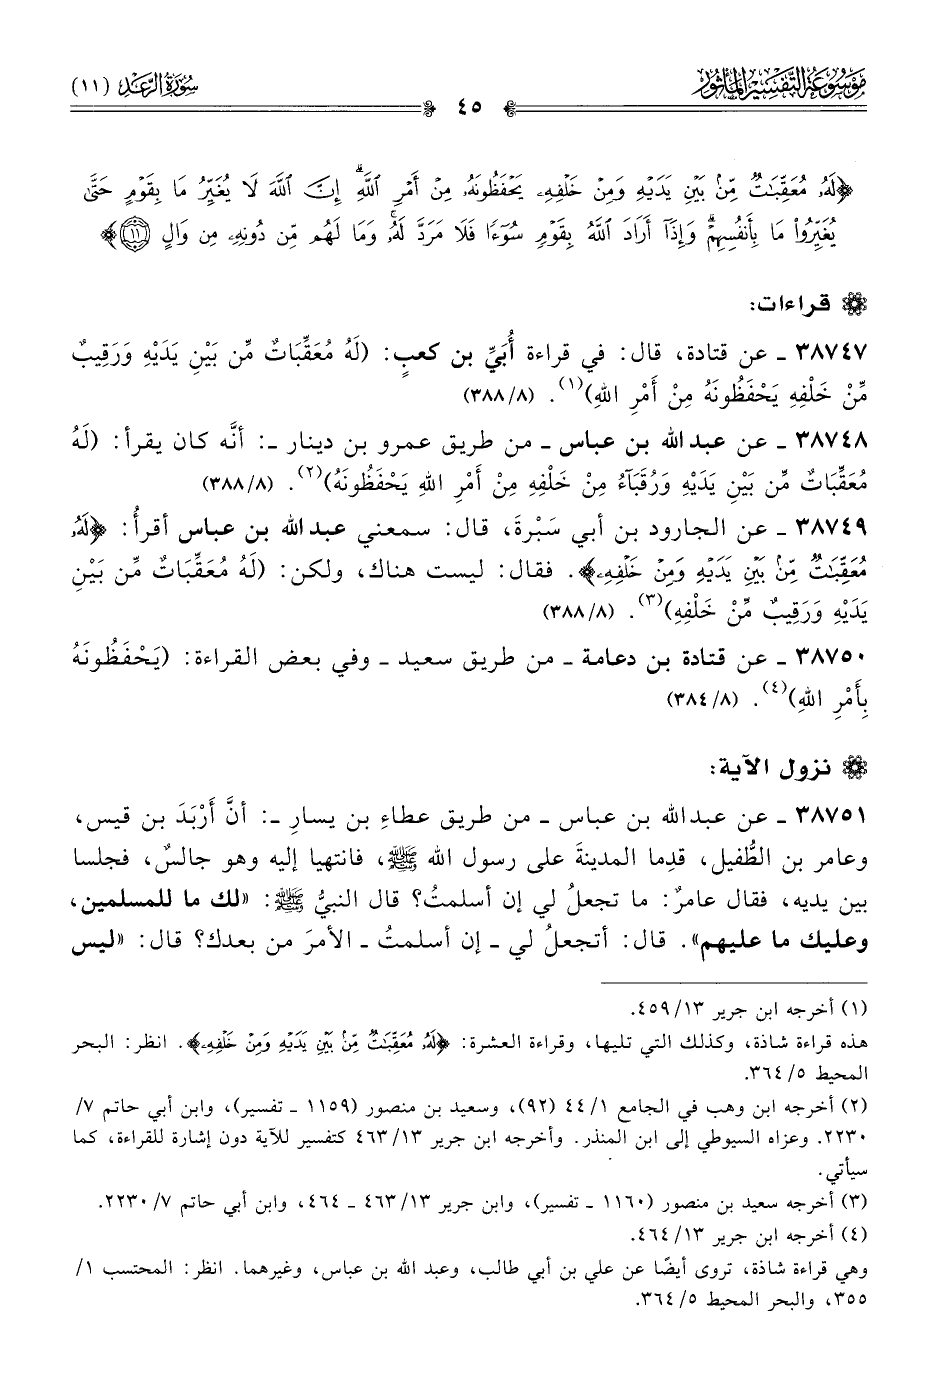 مَوْسُوعَةُ التَّفْسِيرِ المَأْثُورِ
سُورَةُ الرَّعْدِ (١١)
٤٥
﴿لَهُۥ مُعَقِّبَٰتٌ مِّنۢ بَيْنِ يَدَيْهِ وَمِنْ خَلْفِهِۦ يَحْفَظُونَهُۥ مِنْ أَمْرِ ٱللَّهِۗ إِنَّ ٱللَّهَ لَا يُغَيِّرُ مَا بِقَوْمٍ حَتَّىٰ
يُغَيِّرُوا۟ مَا بِأَنفُسِهِمْۗ وَإِذَآ أَرَادَ ٱللَّهُ بِقَوْمٍ سُوٓءًا فَلَا مَرَدَّ لَهُۥۚ وَمَا لَهُم مِّن دُونِهِۦ مِن وَالٍ ۝١١﴾
قراءات:
٣٨٧٤٧ ـ عن قتادة، قال: في قراءة أُبَيِّ بن كعبٍ: (لَهُ مُعَقِّبَاتٌ مِّن بَيْنِ يَدَيْهِ وَرَقِيبٌ
مِّنْ خَلْفِهِ يَحْفَظُونَهُ مِنْ أَمْرِ اللهِ)(١). (٣٨٨/٨)
٣٨٧٤٨ ـ عن عبد الله بن عباس ـ من طريق عمرو بن دينار ـ: أنَّه كان يقرأ: (لَهُ
مُعَقِّبَاتٌ مِّن بَيْنِ يَدَيْهِ وَرُقَبَآءُ مِنْ خَلْفِهِ مِنْ أَمْرِ اللهِ يَحْفَظُونَهُ)(٢). (٣٨٨/٨)
٣٨٧٤٩ ـ عن الجارود بن أبي سَبْرةَ، قال: سمعني عبد الله بن عباس أقرأُ: ﴿لَهُۥ
مُعَقِّبَٰتٌ مِّنۢ بَيْنِ يَدَيْهِ وَمِنْ خَلْفِهِۦ﴾. فقال: ليست هناك، ولكن: (لَهُ مُعَقِّبَاتٌ مِّن بَيْنِ
يَدَيْهِ وَرَقِيبٌ مِّنْ خَلْفِهِ)(٣). (٣٨٨/٨)
٣٨٧٥٠ ـ عن قتادة بن دعامة ـ من طريق سعيد ـ وفي بعض القراءة: (يَحْفَظُونَهُ
بِأَمْرِ اللهِ)(٤). (٣٨٤/٨)
نزول الآية:
٣٨٧٥١ ـ عن عبد الله بن عباس ـ من طريق عطاءِ بن يسارِ ـ: أنَّ أَرْبَدَ بن قيس،
وعامر بن الطُّفيل، قدِما المدينةَ على رسول الله ﷺ، فانتهيا إليه وهو جالسٌ، فجلسا
بين يديه، فقال عامرٌ: ما تجعلُ لي إن أسلمتُ؟ قال النبيُّ ﷺ: «لك ما للمسلمين،
وعليك ما عليهم». قال: أتجعلُ لي ـ إن أسلمتُ ـ الأمرَ من بعدك؟ قال: «ليس
(١) أخرجه ابن جرير ١٣/ ٤٥٩.
هذه قراءة شاذة، وكذلك التي تليها، وقراءة العشرة: ﴿لَهُۥ مُعَقِّبَٰتٌ مِّنۢ بَيْنِ يَدَيْهِ وَمِنْ خَلْفِهِۦ﴾. انظر: البحر
المحيط ٥/ ٣٦٤.
(٢) أخرجه ابن وهب في الجامع ١/ ٤٤ (٩٢)، وسعيد بن منصور (١١٥٩ ـ تفسير)، وابن أبي حاتم ٧/
٢٢٣٠. وعزاه السيوطي إلى ابن المنذر. وأخرجه ابن جرير ١٣/ ٤٦٣ كتفسير للآية دون إشارة للقراءة، كما
سيأتي.
(٣) أخرجه سعيد بن منصور (١١٦٠ ـ تفسير)، وابن جرير ١٣/ ٤٦٣ ـ ٤٦٤، وابن أبي حاتم ٧/ ٢٢٣٠.
(٤) أخرجه ابن جرير ١٣/ ٤٦٤.
وهي قراءة شاذة، تروى أيضًا عن علي بن أبي طالب، وعبد الله بن عباس، وغيرهما. انظر: المحتسب ١/
٣٥٥، والبحر المحيط ٥/ ٣٦٤.